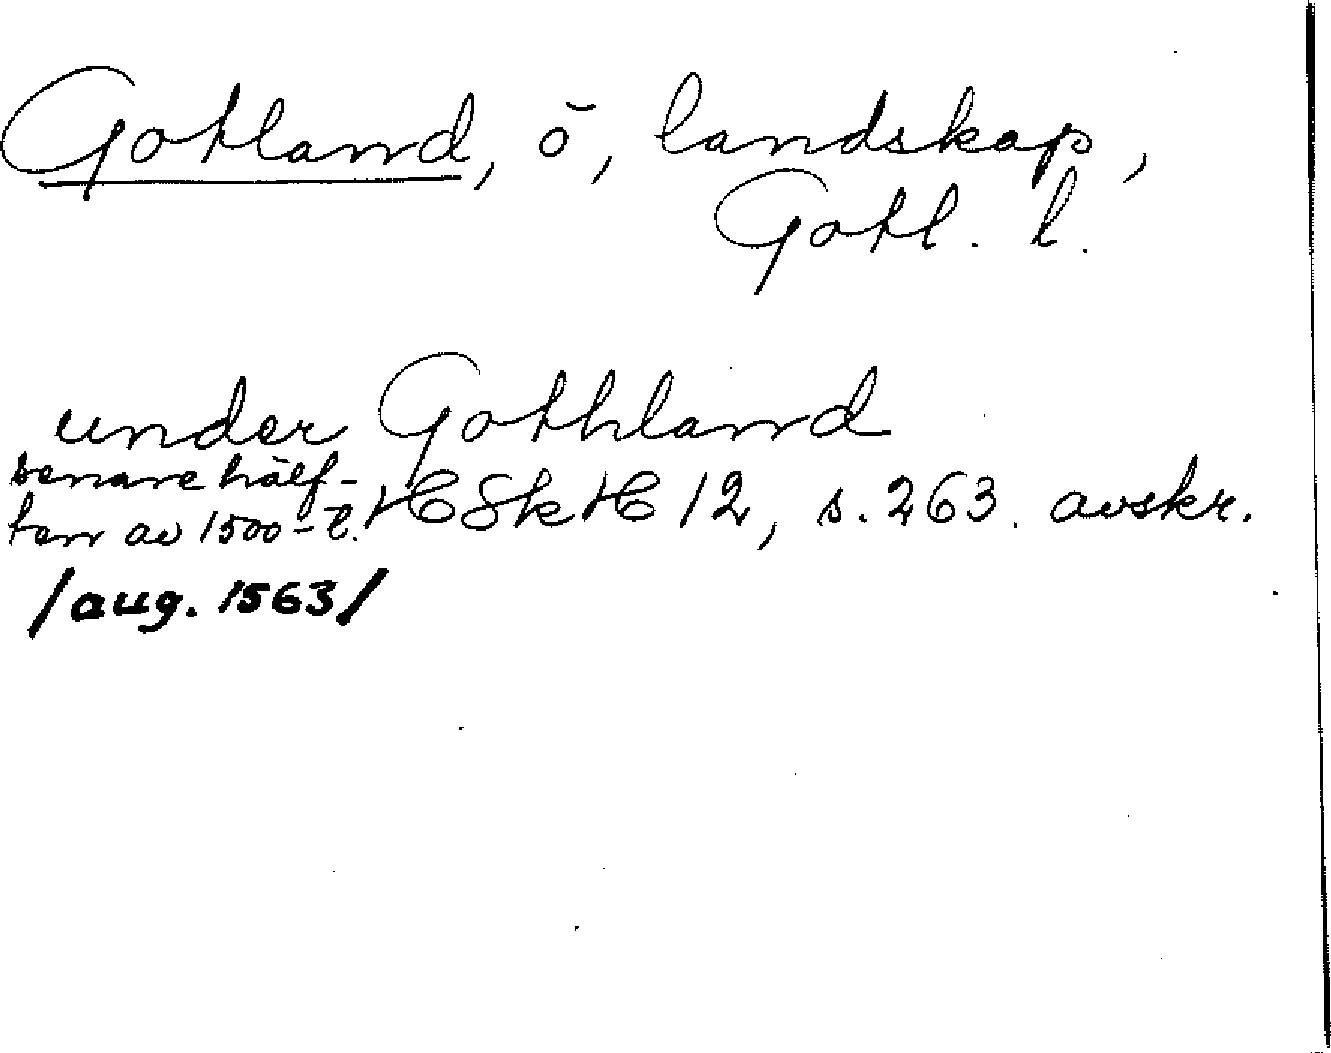 Gotland, ö, landskap,
Gotl. l.
under Gothland
senare hälf-
ten av 1500-t. HSkH 12, s. 263. avskr.
/aug. 1563/